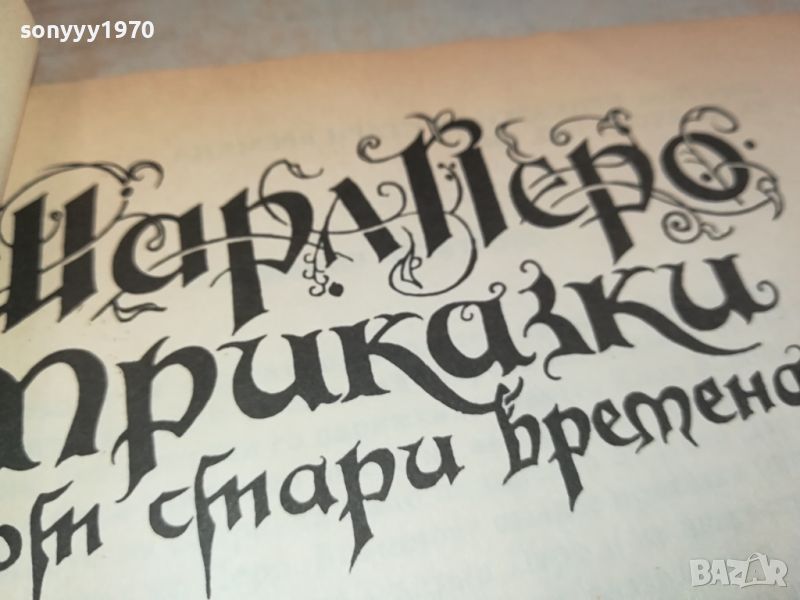 sonyyy1970
Шарл Перо
Приказки
от стари времена
BAZAR